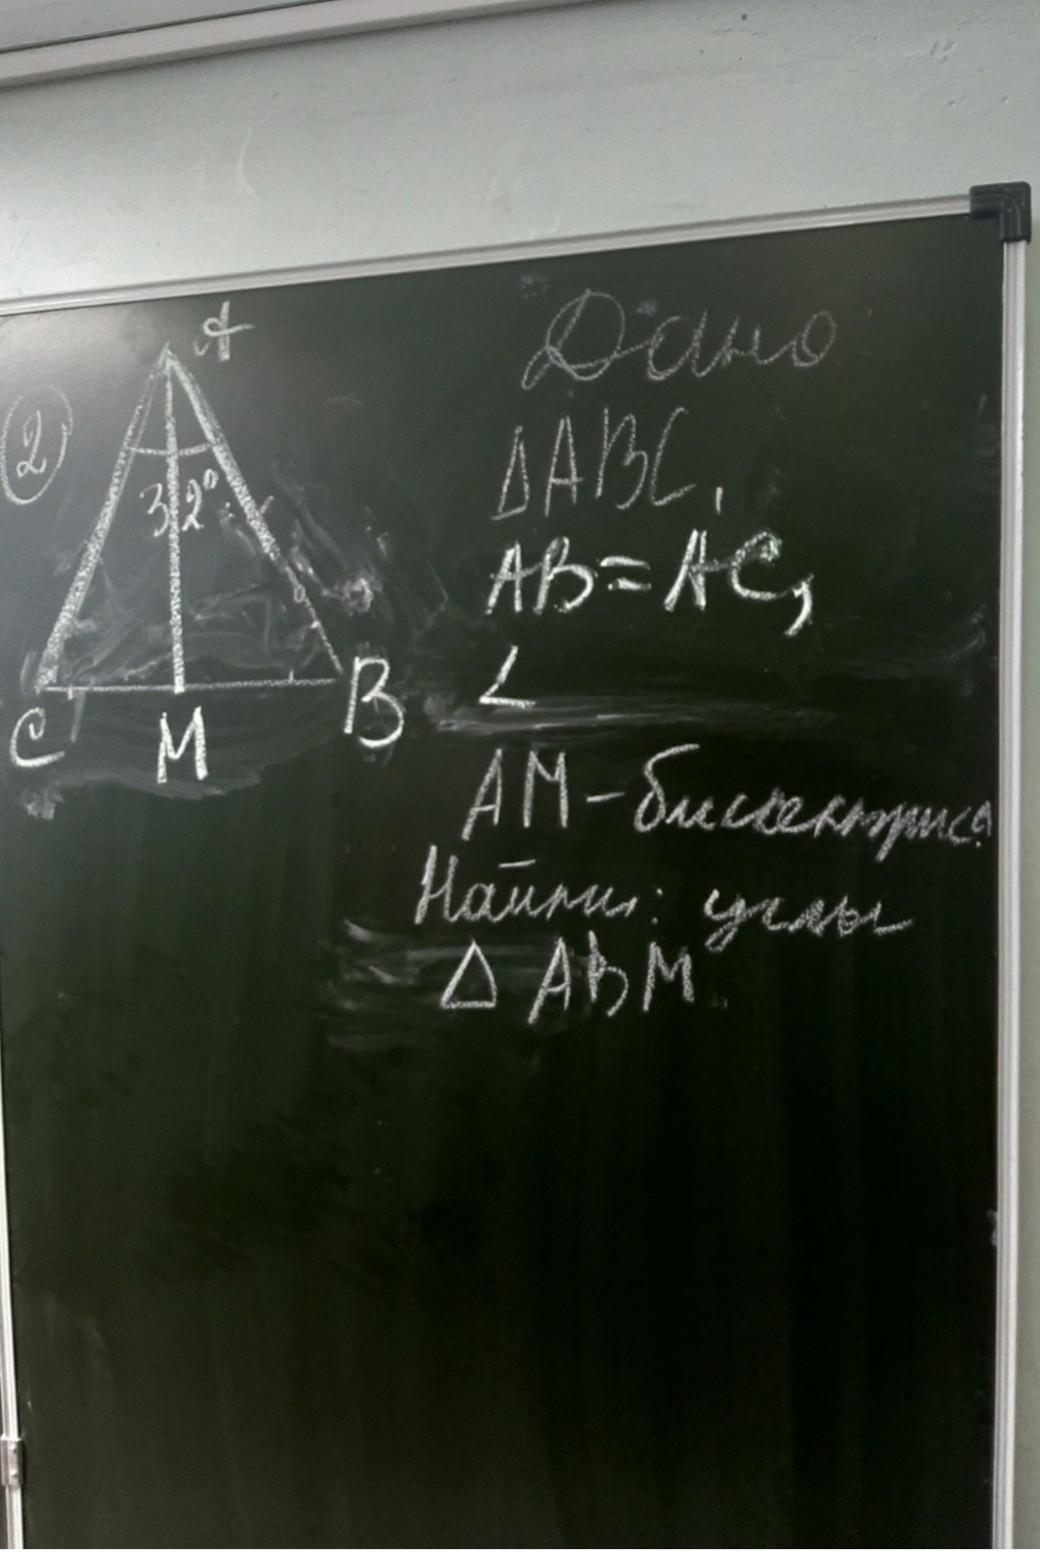 A
2
32°
C
M
B
Дано
△ABC,
AB=AC,
∠
AM – биссектриса
Найти: углы
△ ABM